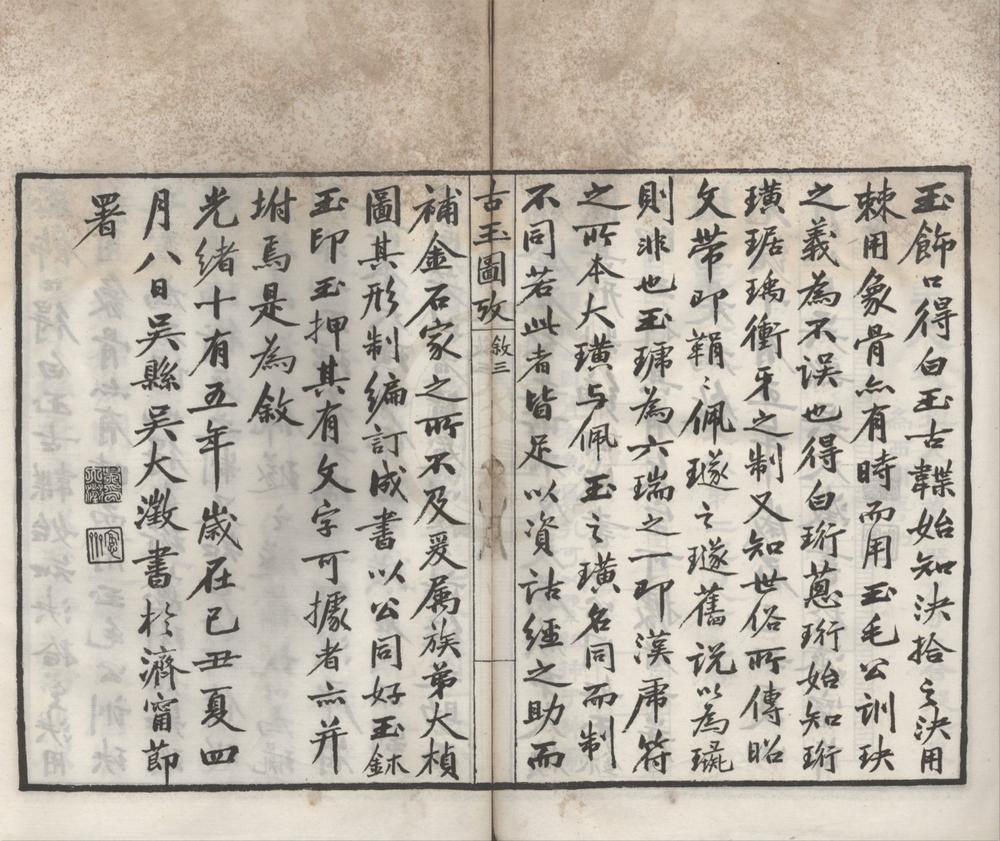 玉飾口得白玉古韘始知決拾之決用
棘用象骨亦有時而用玉毛公訓玦
之義為不誤也得白珩蔥珩始知珩
璜琚瑀衝牙之制又知世俗所傳昭
文帶即鞙〻佩璲之璲舊說以為璏
則非也玉琥為六瑞之一即漢虎符
之所本大璜与佩玉之璜名同而制
不同若此者皆足以資詁經之助而
古玉圖攷
敘三
補金石家之所不及爰属族弟大楨
圖其形制編訂成書以公同好玉鉨
玉印玉押其有文字可據者亦并
坿焉是為敘
光緒十有五年歲在己丑夏四
月八日吳縣吳大澂書於濟甯節
署